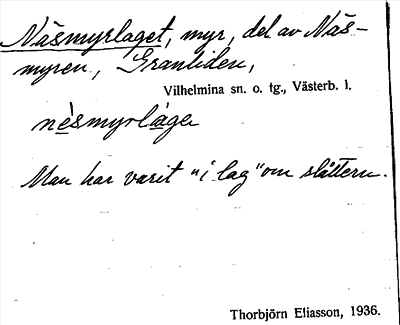 Näsmyrlaget, myr, del av Näs-
myren, Granliden,
Vilhelmina sn. o. tg., Västerb. l.
nèsmyrlàge
Man har varit "i lag" om slåttern.
Thorbjörn Eliasson, 1936.